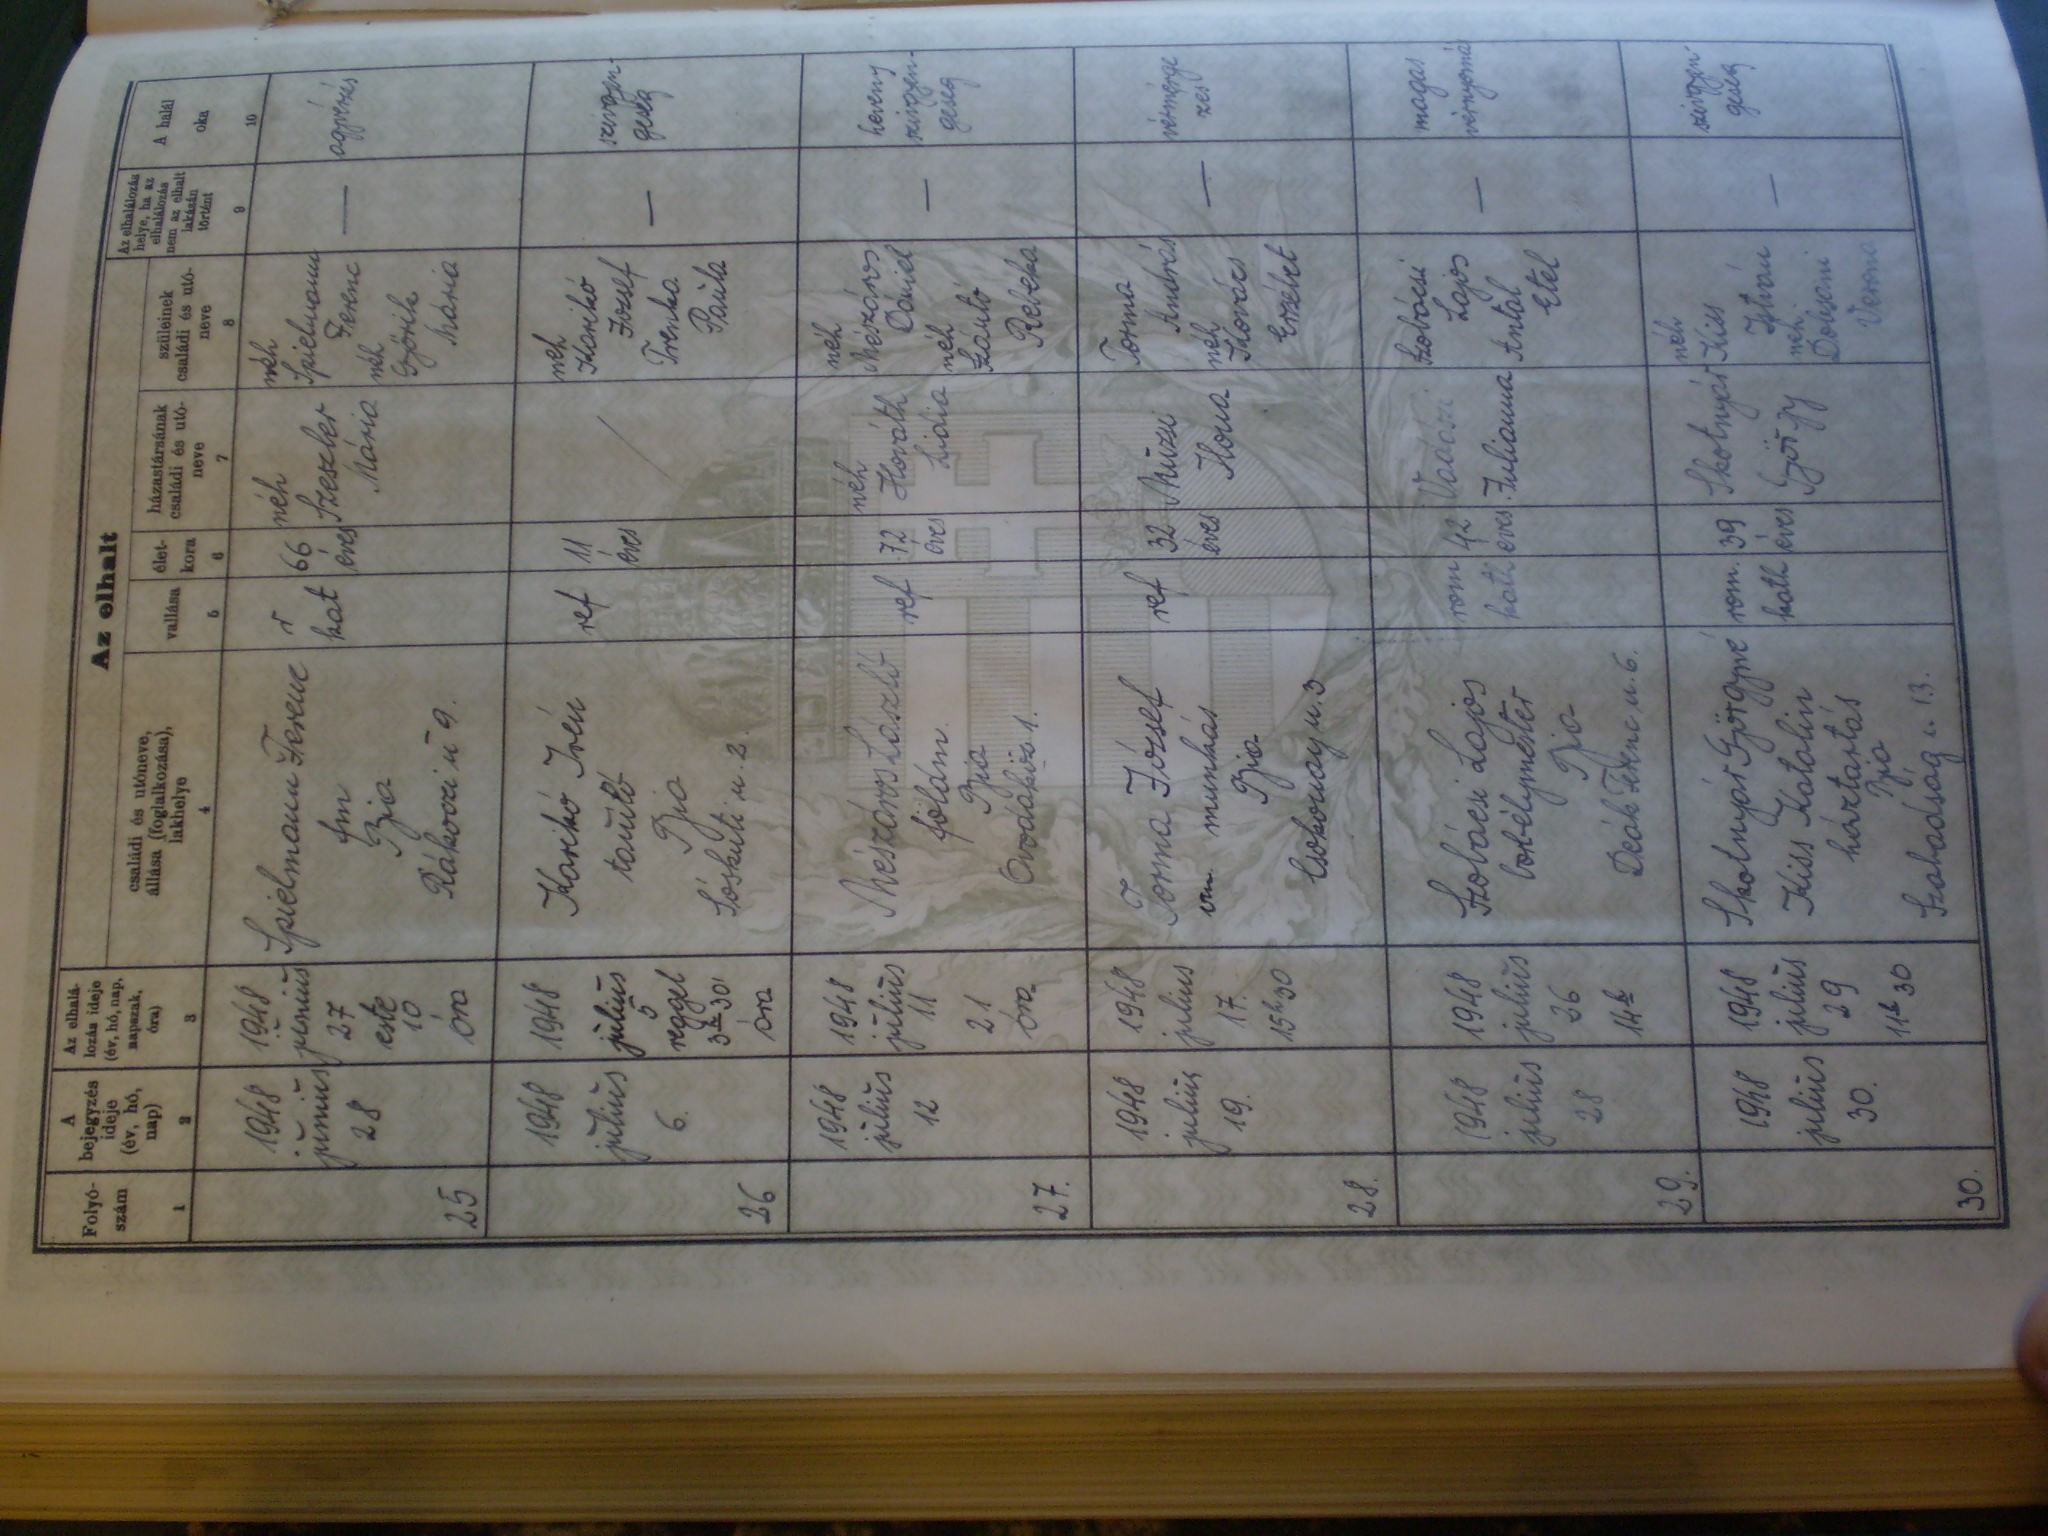 Az elhalt
Folyó-
szám
A
bejegyzés
ideje
(év, hó,
nap)
Az elhalá-
lozás ideje
(év, hó, nap,
napszak,
óra)
családi és utóneve,
állása (foglalkozása),
lakhelye
vallása
élet-
kora
házastársának
családi és utó-
neve
szüleinek
családi és utó-
neve
Az elhalálozás
helye, ha az
elhalálozás
nem az elhalt
lakásán
történt
A halál
oka
1
2
3
4
5
6
7
8
9
10
25
1948
június
28
1948
június
27
este
10
óra
Spielmann Ferenc
fm
Bia
Rákoczi u 9.
r
kat
66
éves
néh
Szeszler
Mária
néh
Spielmann
Ferenc
néh
Györik
Mária
—
agyvérzés
26
1948
július
6.
1948
július
5
reggel
3h 30'
óra
Karikó Irén
tanuló
Bia
Sóskuti u. 2.
ref
11
éves
neh
Karikó
József
Trenka
Paula
—
szivgyen-
geség
27.
1948
július
12
1948
július
11
21
óra
Mészáros László
földm.
Bia
Óvodaköz 1.
ref
72
éves
néh
Horváth
Lidia
néh
Mészáros
Dániel
néh
Szántó
Rebeka
—
heveny
szivgyen-
geség
28.
1948
július
19.
1948
július
17.
15h 30
Torma József
munkás
Bia
Csokonay u. 3
ref
32
éves
Müzui
Ilona
Torma
András
néh
Kovács
Erzsébet
—
vérmérge
zés
29.
1948
július
28
1948
július
26
14h
Szobácsi Lajos
borbélymester
Bia
Deák Ferenc u. 6.
rom
kath
42
éves
Vadászi
Julianna
Szobácsi
Lajos
Antal
Etel
—
magas
vérnyomás
30.
1948
július
30.
1948
július
29
11h 30
Skolnyár Györgyné
Kiss Katalin
háztartás
Bia
Szabadság u. 13.
rom.
kath
39
éves
Skolnyár
György
néh
Kiss
István
neh.
Verona
—
szivgyen-
geség